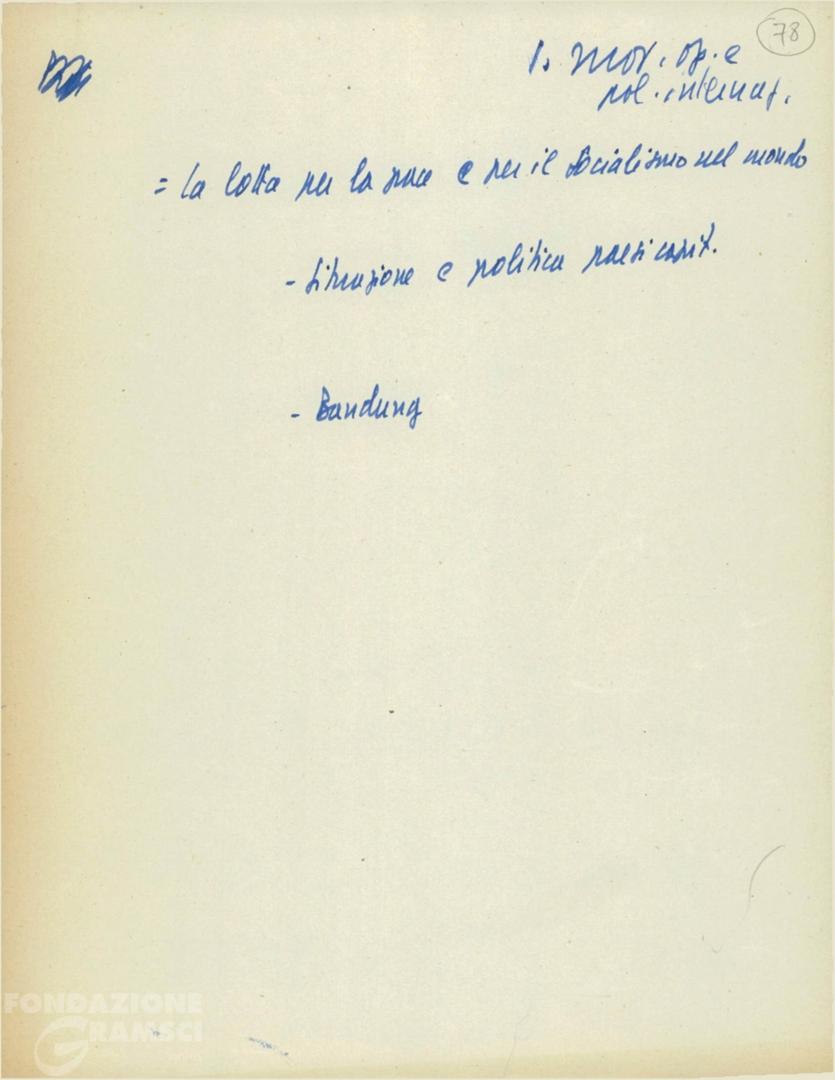 78
1. mov. op. e
pol. internaz.
= La lotta per la pace e per il socialismo nel mondo
- situazione e politica paesi capit.
- Bandung
FONDAZIONE
GRAMSCI